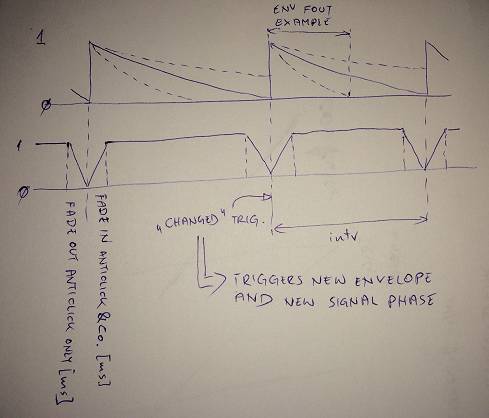 ENV FOUT
EXAMPLE
1
0
1
0
"CHANGED" TRIG.
intv
TRIGGERS NEW ENVELOPE
AND NEW SIGNAL PHASE
FADE OUT ANTICLICK ONLY [ms]
FADE IN ANTICLICK & CO. [ms]